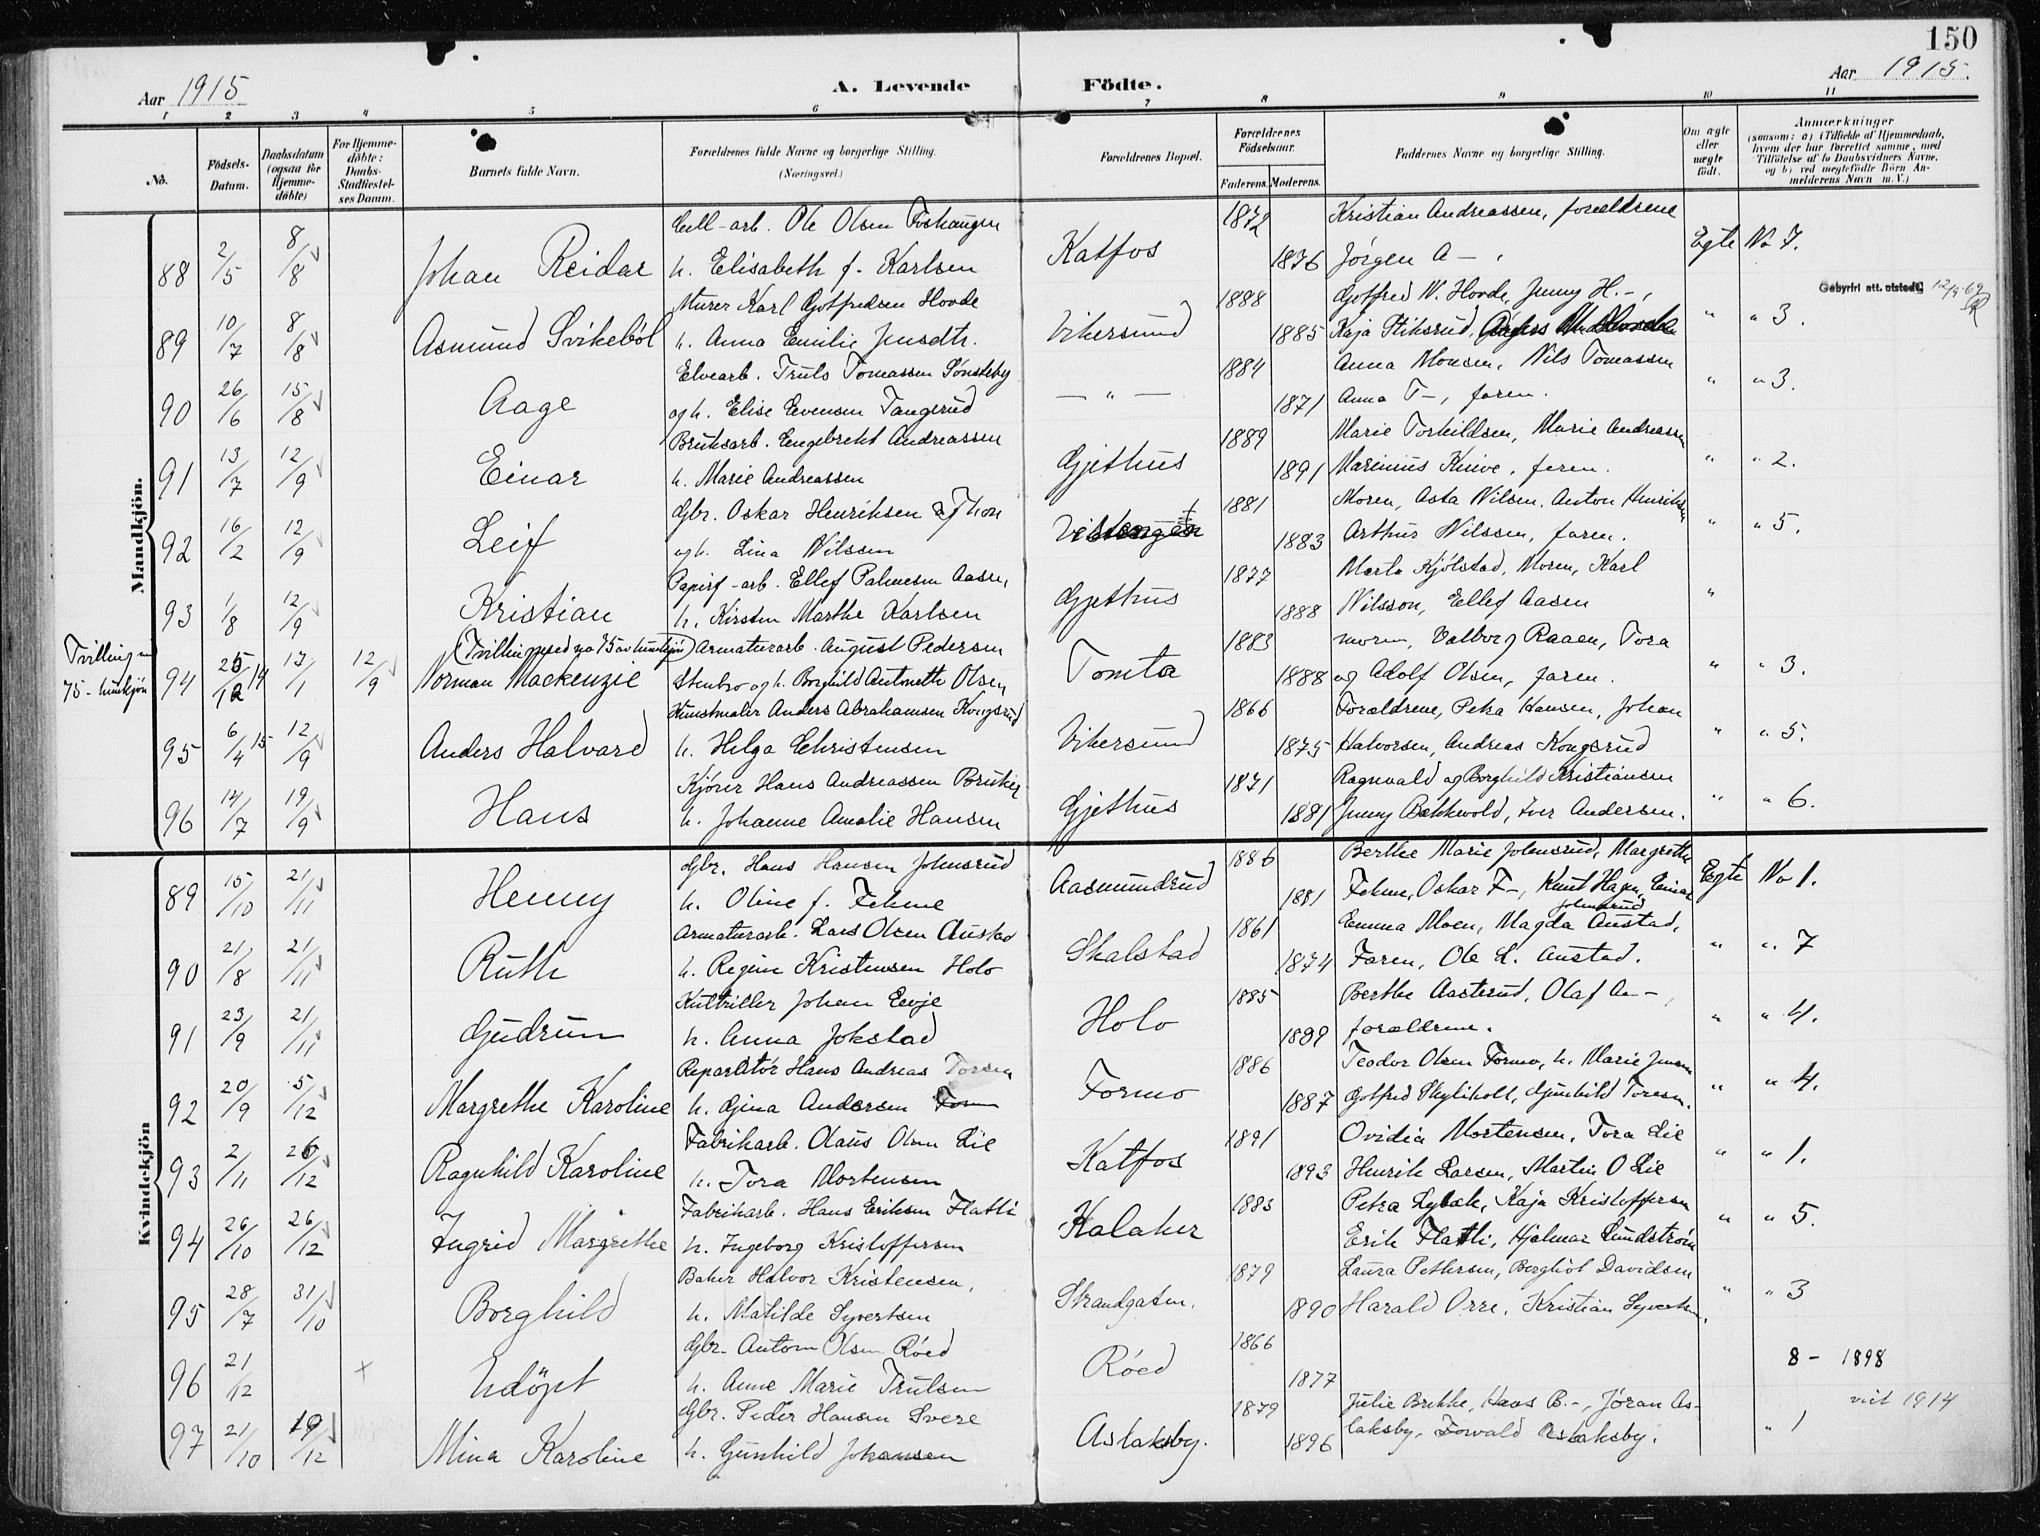 150
Aar 1915
A. Levende Födte.
Aar 1915.
1 2 3 4 5 6 7 8 9 10 11
No.
Födsels-Datum.
Daabsdatum (ogsaa for Hjemme-döbte)
For Hjemme-döbte: Daabs-Stadfæstel-ses Datum.
Barnets fulde Navn.
Forældrenes fulde Navne og borgerlige Stilling. (Næringsvei.)
Forældrenes Bopæl.
Forældrenes Födselsaar.
Faderens. Moderens.
Faddernes Navne og borgerlige Stilling.
Om ægte eller uægte födt.
Anmærkninger (saasom: a) i Tilfælde af Hjemmedaab, hvem der har forrettet samme, med Tilföielse af to Daabsvidners Navne, og b) ved uægtefödte Börn An-melderens Navn m. V.)
Mandkjön.
Cell-arb. Ole Olsen Foshaugen 1872 Kristian Andreassen, forældrene
88 2/5 8/8 Johan Reidar h. Elisabeth f. Karlsen Katfos 1876 Jørgen A-, Egte No 7.
Murer Karl Gotfredsen Hovde 1888 Gotfred N. Hovde, Jenny H.-, Gebyrfri att. utstedt 12/9.69
89 10/7 8/8 Asmund Svikebøl h. Anna Emilie Jensdtr. Vikersund 1885 Kaja Stiksrud, " " 3.
Elvearb. Truls Tomassen Sønsteby 1884 Anna Monsen, Nils Tomassen
90 26/6 15/8 Aage og h. Elise Evensen Tangerud — " — 1871 Anna T-, faren. " " 3.
Bruksarb. Engebrekt Andreassen 1889 Marie Torkildsen, Marie Andreassen
91 13/7 12/9 Einar h. Marie Andreassen Gjethus 1891 Marinius Knive, faren. " " 2.
Gbr. Oskar Henriksen Thon 1881 Moren, Asta Nilsen, Anton Henriksen
92 16/2 12/9 Leif og h. Lina Nilssen 1883 Arthur Nilssen, faren. " " 5.
Papirf-arb. Ellef Palmesen Aasen, 1877 Marta Kjølstad, Moren, Karl
93 1/8 12/9 Kristian h. Kirsten Marthe Karlsen Gjethus 1888 Nilsson, Ellef Aasen "
Tvilling m 75-kunkjøn
(Tvilling med no 75 av kunkjøn) Armaturarb. August Pedersen 1883 moren, Valborg Raaen, Tora
94 25/12 14 17/1 12/9 Norman Mackenzie Stenbro og h. Borghild Antonette Olsen Tomta 1888 og Adolf Olsen, faren. " " 3.
Kunstmaler Anders Abrahamsen Kongsrud 1866 Forældrene, Petra Hansen, Johan
95 6/4 15 12/9 Anders Halvard h. Helga Christensen Vikersund 1875 Halvorsen, Andreas Kongsrud " " 5.
Kjører Hans Andreassen Brusker 1871 Ragnvald og Borghild Kristiansen
96 14/7 19/9 Hans h. Johanne Amalie Hansen Gjethus 1881 Jenny Bækkevold, Iver Andersen. " " 6.
Kvindekjön
Gbr. Hans Hansen Johnsrud 1886 Berthe Marie Johnsrud, Margrethe
89 15/10 21/11 Henny h. Oline f. Fehme Aasmundrud 1881 Fehme, Oskar F-, Knut Hagen, Einar Johnsrud Egte No 1.
Armaturarb. Lars Olsen Austad 1861 Emma Moen, Magda Austad,
90 21/8 21/11 Ruth h. Regine Kristensen Holo Skalstad 1874 Faren, Ole L. Austad. " " 7
Kulkiller Johan Eevje 1885 Berthe Aasterud, Olaf Aa-,
91 23/9 21/11 Gudrun h. Anna Jokstad Holo 1889 forældrene. " " 4.
Reparatør Hans Andreas Torsen 1886 Teodor Olsen Formo, h. Marie Jensen
92 20/9 5/12 Margrethe Karoline h. Gina Andersen Formo 1887 Gotfred Skyliholt, Gunhild Toresen. " " 4.
Fabrikarb. Olaus Olsen Lie 1891 Ovidia Mortensen, Tora Lie
93 2/11 26/12 Ragnhild Karoline h. Tora Mortensen Katfos 1893 Henrik Larsen, Martin O Lie " " 1.
Fabrikarb. Hans Eriksen Flatli 1883 Petra Lybæk, Kaja Kristoffersen
94 26/10 26/12 Ingrid Margrethe h. Ingeborg Kristoffersen Kalaker Erik Flatli, Hjalmar Lundstrøm " " 5.
Baker Halvor Kristensen, 1879 Laura Pettersen, Bergliot Davidsen
95 28/7 31/10 Borghild h. Matilde Syvertsen Strandgaten. 1890 Harald Orre, Kristian Syvertsen. " " 3
Gbr. Anton Olsen Røed 1866
96 21/12 × Udøpt h. Anne Marie Trulsen Røed 1877 8 - 1898
Gbr. Peder Hansen Svere 1879 Julie Brekke, Hans B.-, Jøran As- viet 1914
97 21/10 19/12 Mina Karoline h. Gunhild Johansen Aslaksby. 1896 laksby, Torvald Aslaksby. " 1